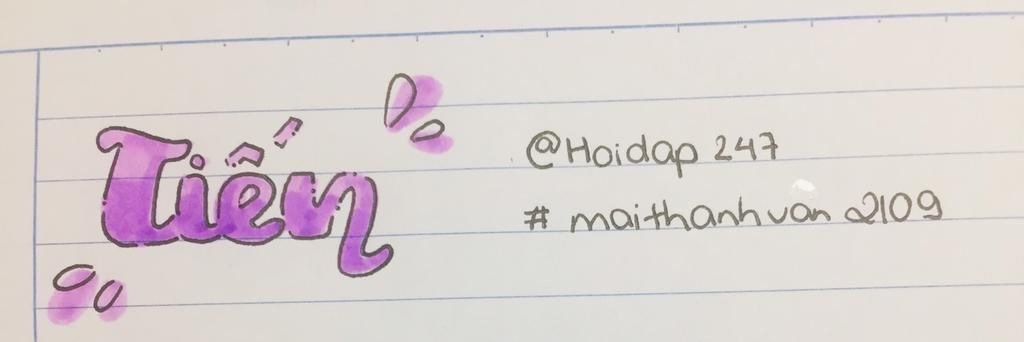 Tiến
@Hoidap 247
# maithanhvan 2109